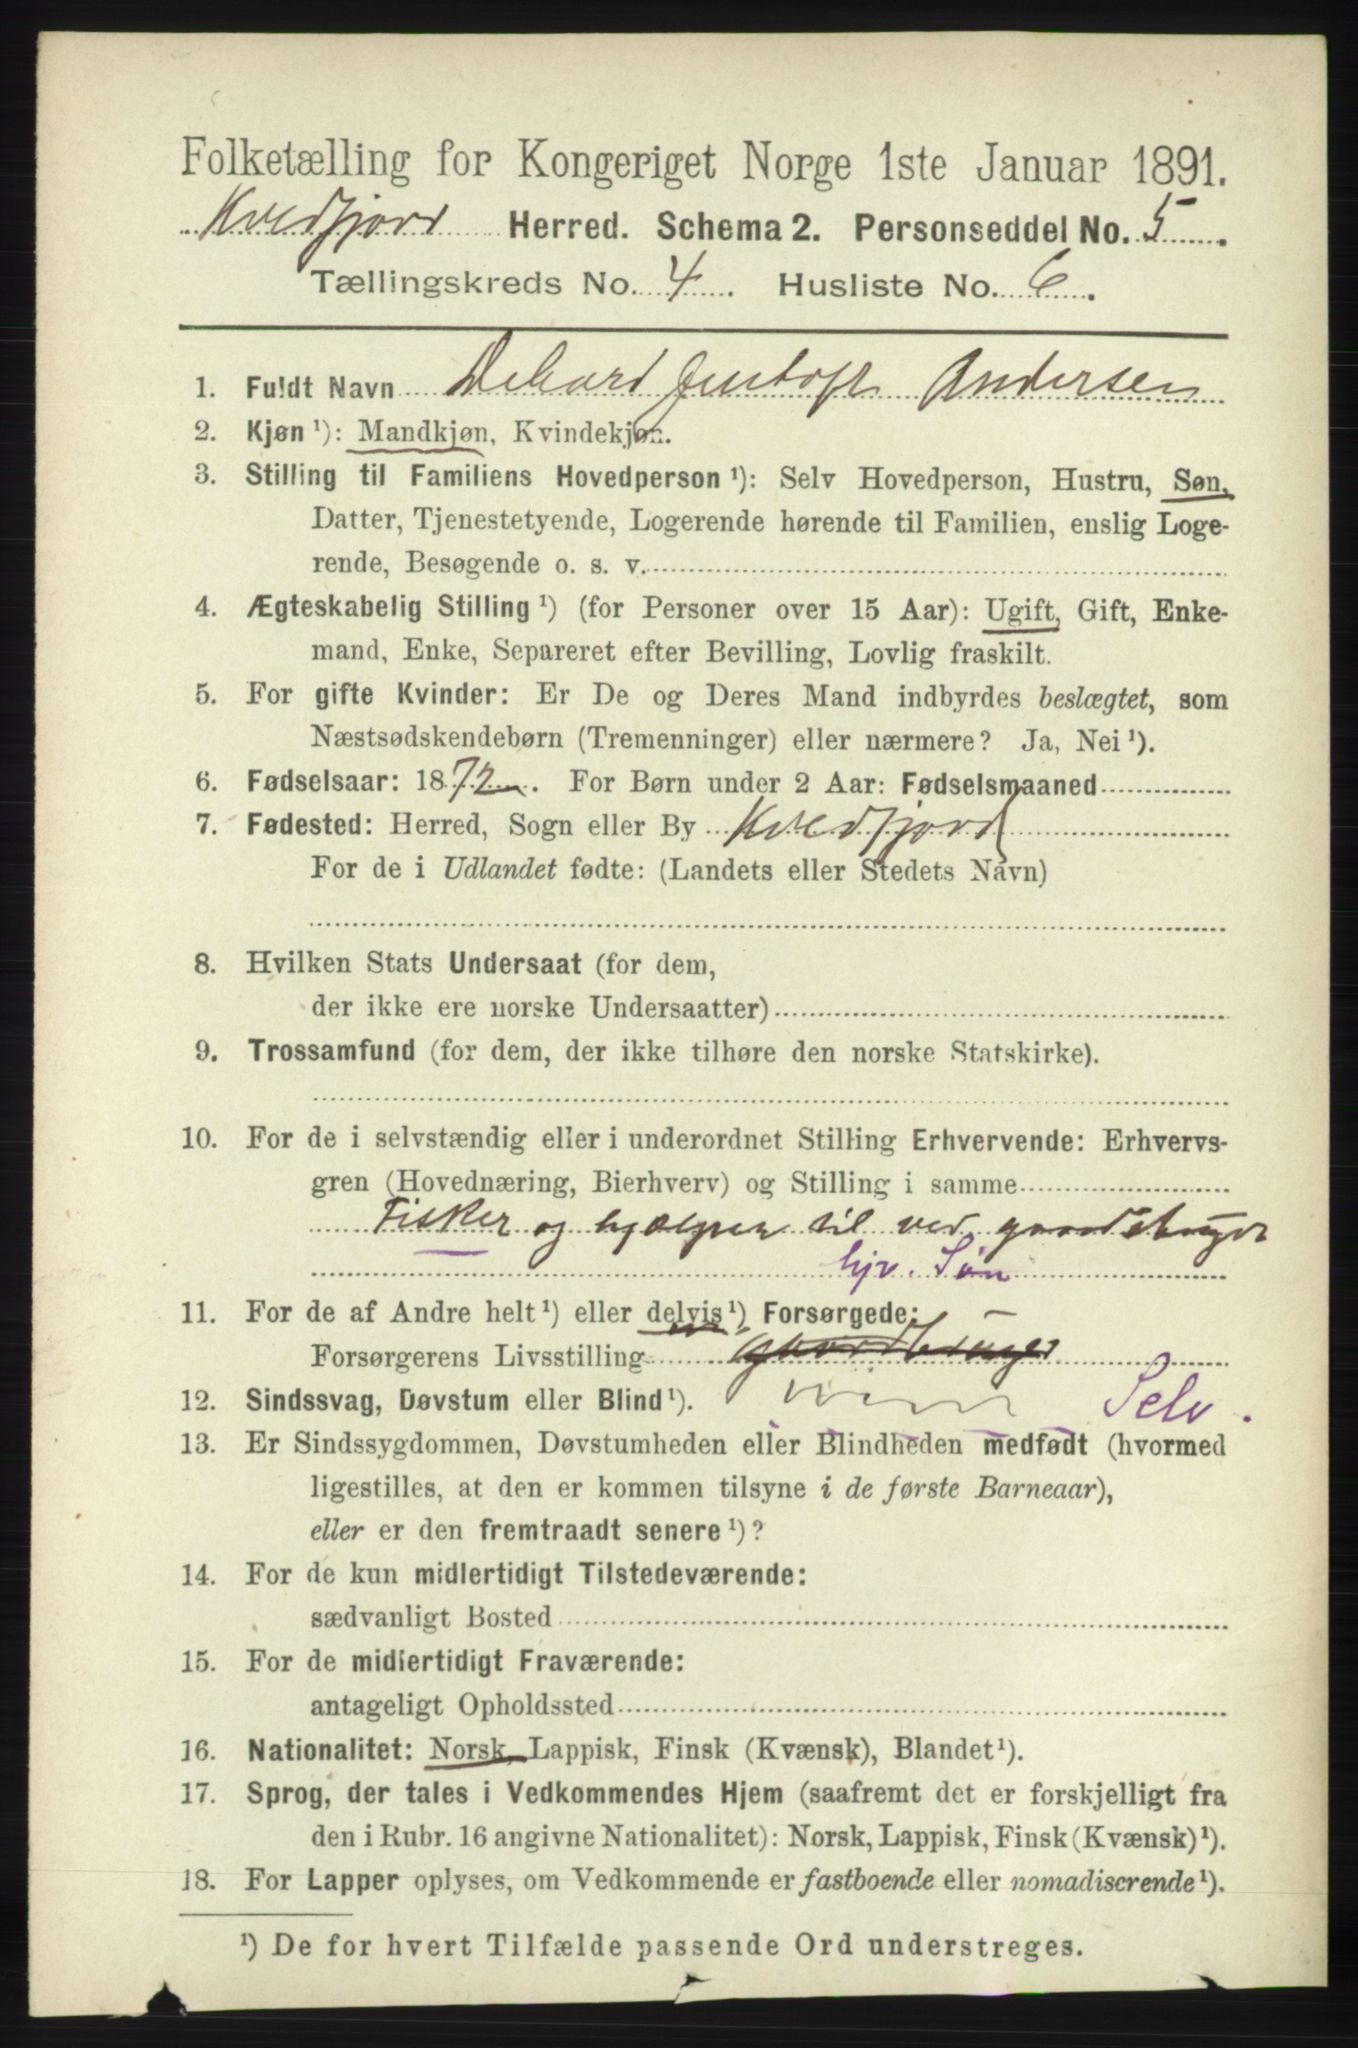 Folketælling for Kongeriget Norge 1ste Januar 1891.
Kvedfjord Herred. Schema 2. Personseddel No. 5.
Tællingskreds No. 4. Husliste No. 6.
1. Fuldt Navn Andersen
2. Kjøn ¹): Mandkjøn, Kvindekjøn.
3. Stilling til Familiens Hovedperson ¹): Selv Hovedperson, Hustru, Søn,
Datter, Tjenestetyende, Logerende hørende til Familien, enslig Loge-
rende, Besøgende o. s. v.
4. Ægteskabelig Stilling ¹) (for Personer over 15 Aar): Ugift, Gift, Enke-
mand, Enke, Separeret efter Bevilling, Lovlig fraskilt.
5. For gifte Kvinder: Er De og Deres Mand indbyrdes beslægtet, som
Næstsødskendebørn (Tremenninger) eller nærmere? Ja, Nei ¹).
6. Fødselsaar: 1872. For Børn under 2 Aar: Fødselsmaaned
7. Fødested: Herred, Sogn eller By Kvedfjord
For de i Udlandet fødte: (Landets eller Stedets Navn)
8. Hvilken Stats Undersaat (for dem,
der ikke ere norske Undersaatter)
9. Trossamfund (for dem, der ikke tilhøre den norske Statskirke).
10. For de i selvstændig eller i underordnet Stilling Erhvervende: Erhvervs-
gren (Hovednæring, Bierhverv) og Stilling i samme
Fisker og hjælper til ved gaardsbruget
hjv. Søn
11. For de af Andre helt ¹) eller delvis ¹) Forsørgede:
Forsørgerens Livsstilling gaardbruger
12. Sindssvag, Døvstum eller Blind ¹). Selv.
13. Er Sindssygdommen, Døvstumheden eller Blindheden medfødt (hvormed
ligestilles, at den er kommen tilsyne i de første Barneaar),
eller er den fremtraadt senere ¹)?
14. For de kun midlertidigt Tilstedeværende:
sædvanligt Bosted
15. For de midlertidigt Fraværende:
antageligt Opholdssted
16. Nationalitet: Norsk, Lappisk, Finsk (Kvænsk), Blandet ¹).
17. Sprog, der tales i Vedkommendes Hjem (saafremt det er forskjelligt fra
den i Rubr. 16 angivne Nationalitet): Norsk, Lappisk, Finsk (Kvænsk) ¹).
18. For Lapper oplyses, om Vedkommende er fastboende eller nomadiserende ¹).
¹) De for hvert Tilfælde passende Ord understreges.